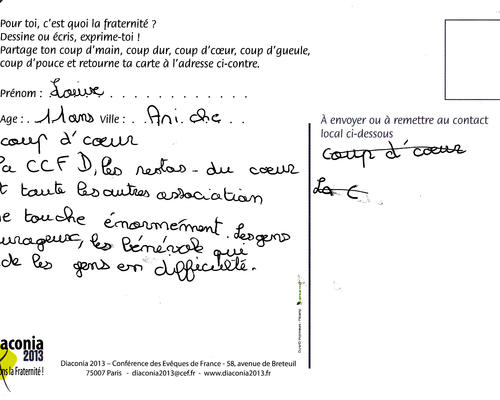 Pour toi, c'est quoi la fraternité ?
Dessine ou écris, exprime-toi !
Partage ton coup d'main, coup dur, coup d'cœur, coup d'gueule,
coup d'pouce et retourne ta carte à l'adresse ci-contre.
Prénom : Louise
Age : 11 ans Ville : Aniche
coup d'cœur
la CCFD, les restos-du cœur
t toute les autres association
e touche énormément. Les gens
urageux, les bénévole qui
de les gens en difficulté.
À envoyer ou à remettre au contact
local ci-dessous
coup d'cœur
La C
aconia
2013
ns la Fraternité !
Diaconia 2013 – Conférence des Evêques de France - 58, avenue de Breteuil
75007 Paris - diaconia2013@cef.fr - www.diaconia2013.fr